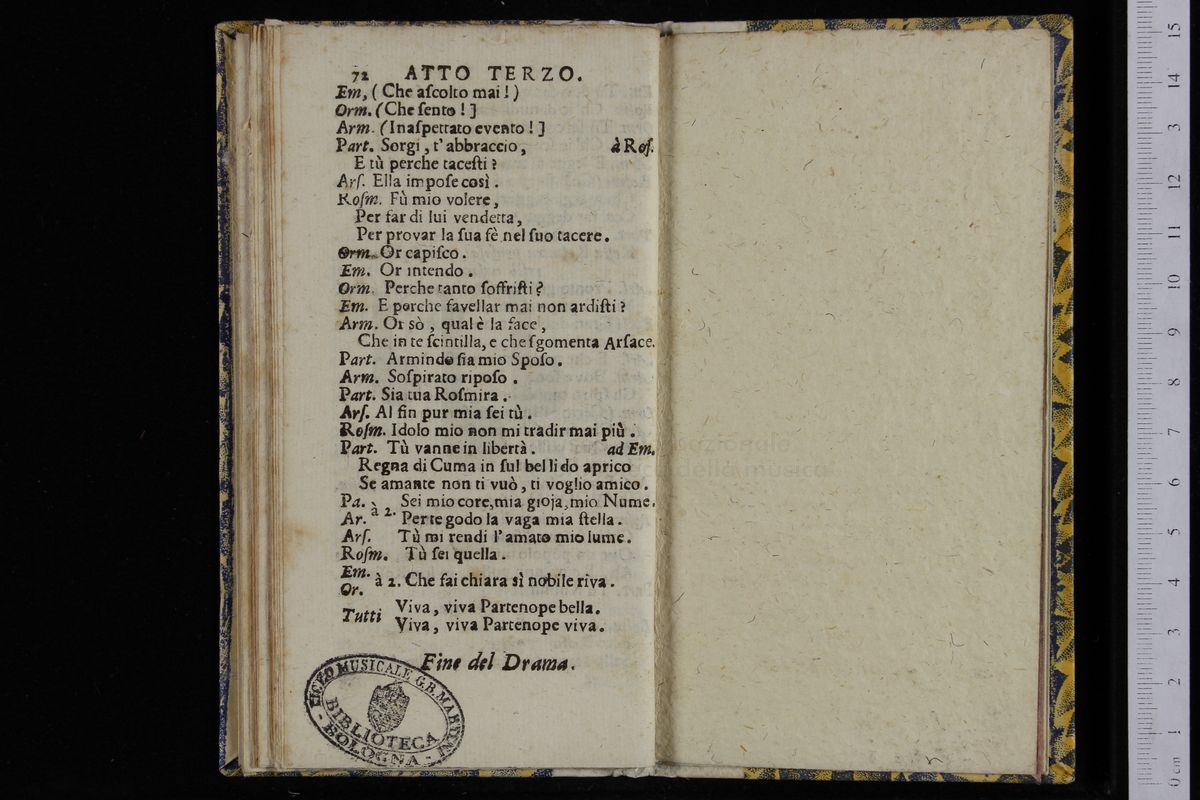 72 ATTO TERZO.
Em, (Che aſcolto mai!)
Orm. (Che ſento!]
Arm. (Inaſpettato evento!]
Part. Sorgi, t'abbraccio, à Roſ.
E tù perche taceſti?
Arſ. Ella impoſe così.
Roſm. Fù mio volere,
Per far di lui vendetta,
Per provar la ſua fè nel ſuo tacere.
Orm. Or capiſco.
Em. Or intendo.
Orm. Perche tanto ſoffriſti?
Em. E perche favellar mai non ardiſti?
Arm. Or sò, qual è la face,
Che in te ſcintilla, e che ſgomenta Arſace.
Part. Armindo ſia mio Spoſo.
Arm. Soſpirato ripoſo.
Part. Sia tua Roſmira.
Arſ. Al fin pur mia ſei tù.
Roſm. Idolo mio non mi tradir mai più.
Part. Tù vanne in libertà. ad Em.
Regna di Cuma in ſul bel lido aprico
Se amante non ti vuò, ti voglio amico.
Pa. à 2. Sei mio core, mia gioja, mio Nume.
Ar. Per te godo la vaga mia ſtella.
Arſ. Tù mi rendi l'amato mio lume.
Roſm. Tù ſei quella.
Em.
Or. à 2. Che fai chiara sì nobile riva.
Tutti Viva, viva Partenope bella.
Viva, viva Partenope viva.
Fine del Drama.
LICEO MUSICALE G.B. MARTINI
BIBLIOTECA
- BOLOGNA -
nazionale
della musica
0 cm 1 2 3 4 5 6 7 8 9 10 11 12 13 14 15